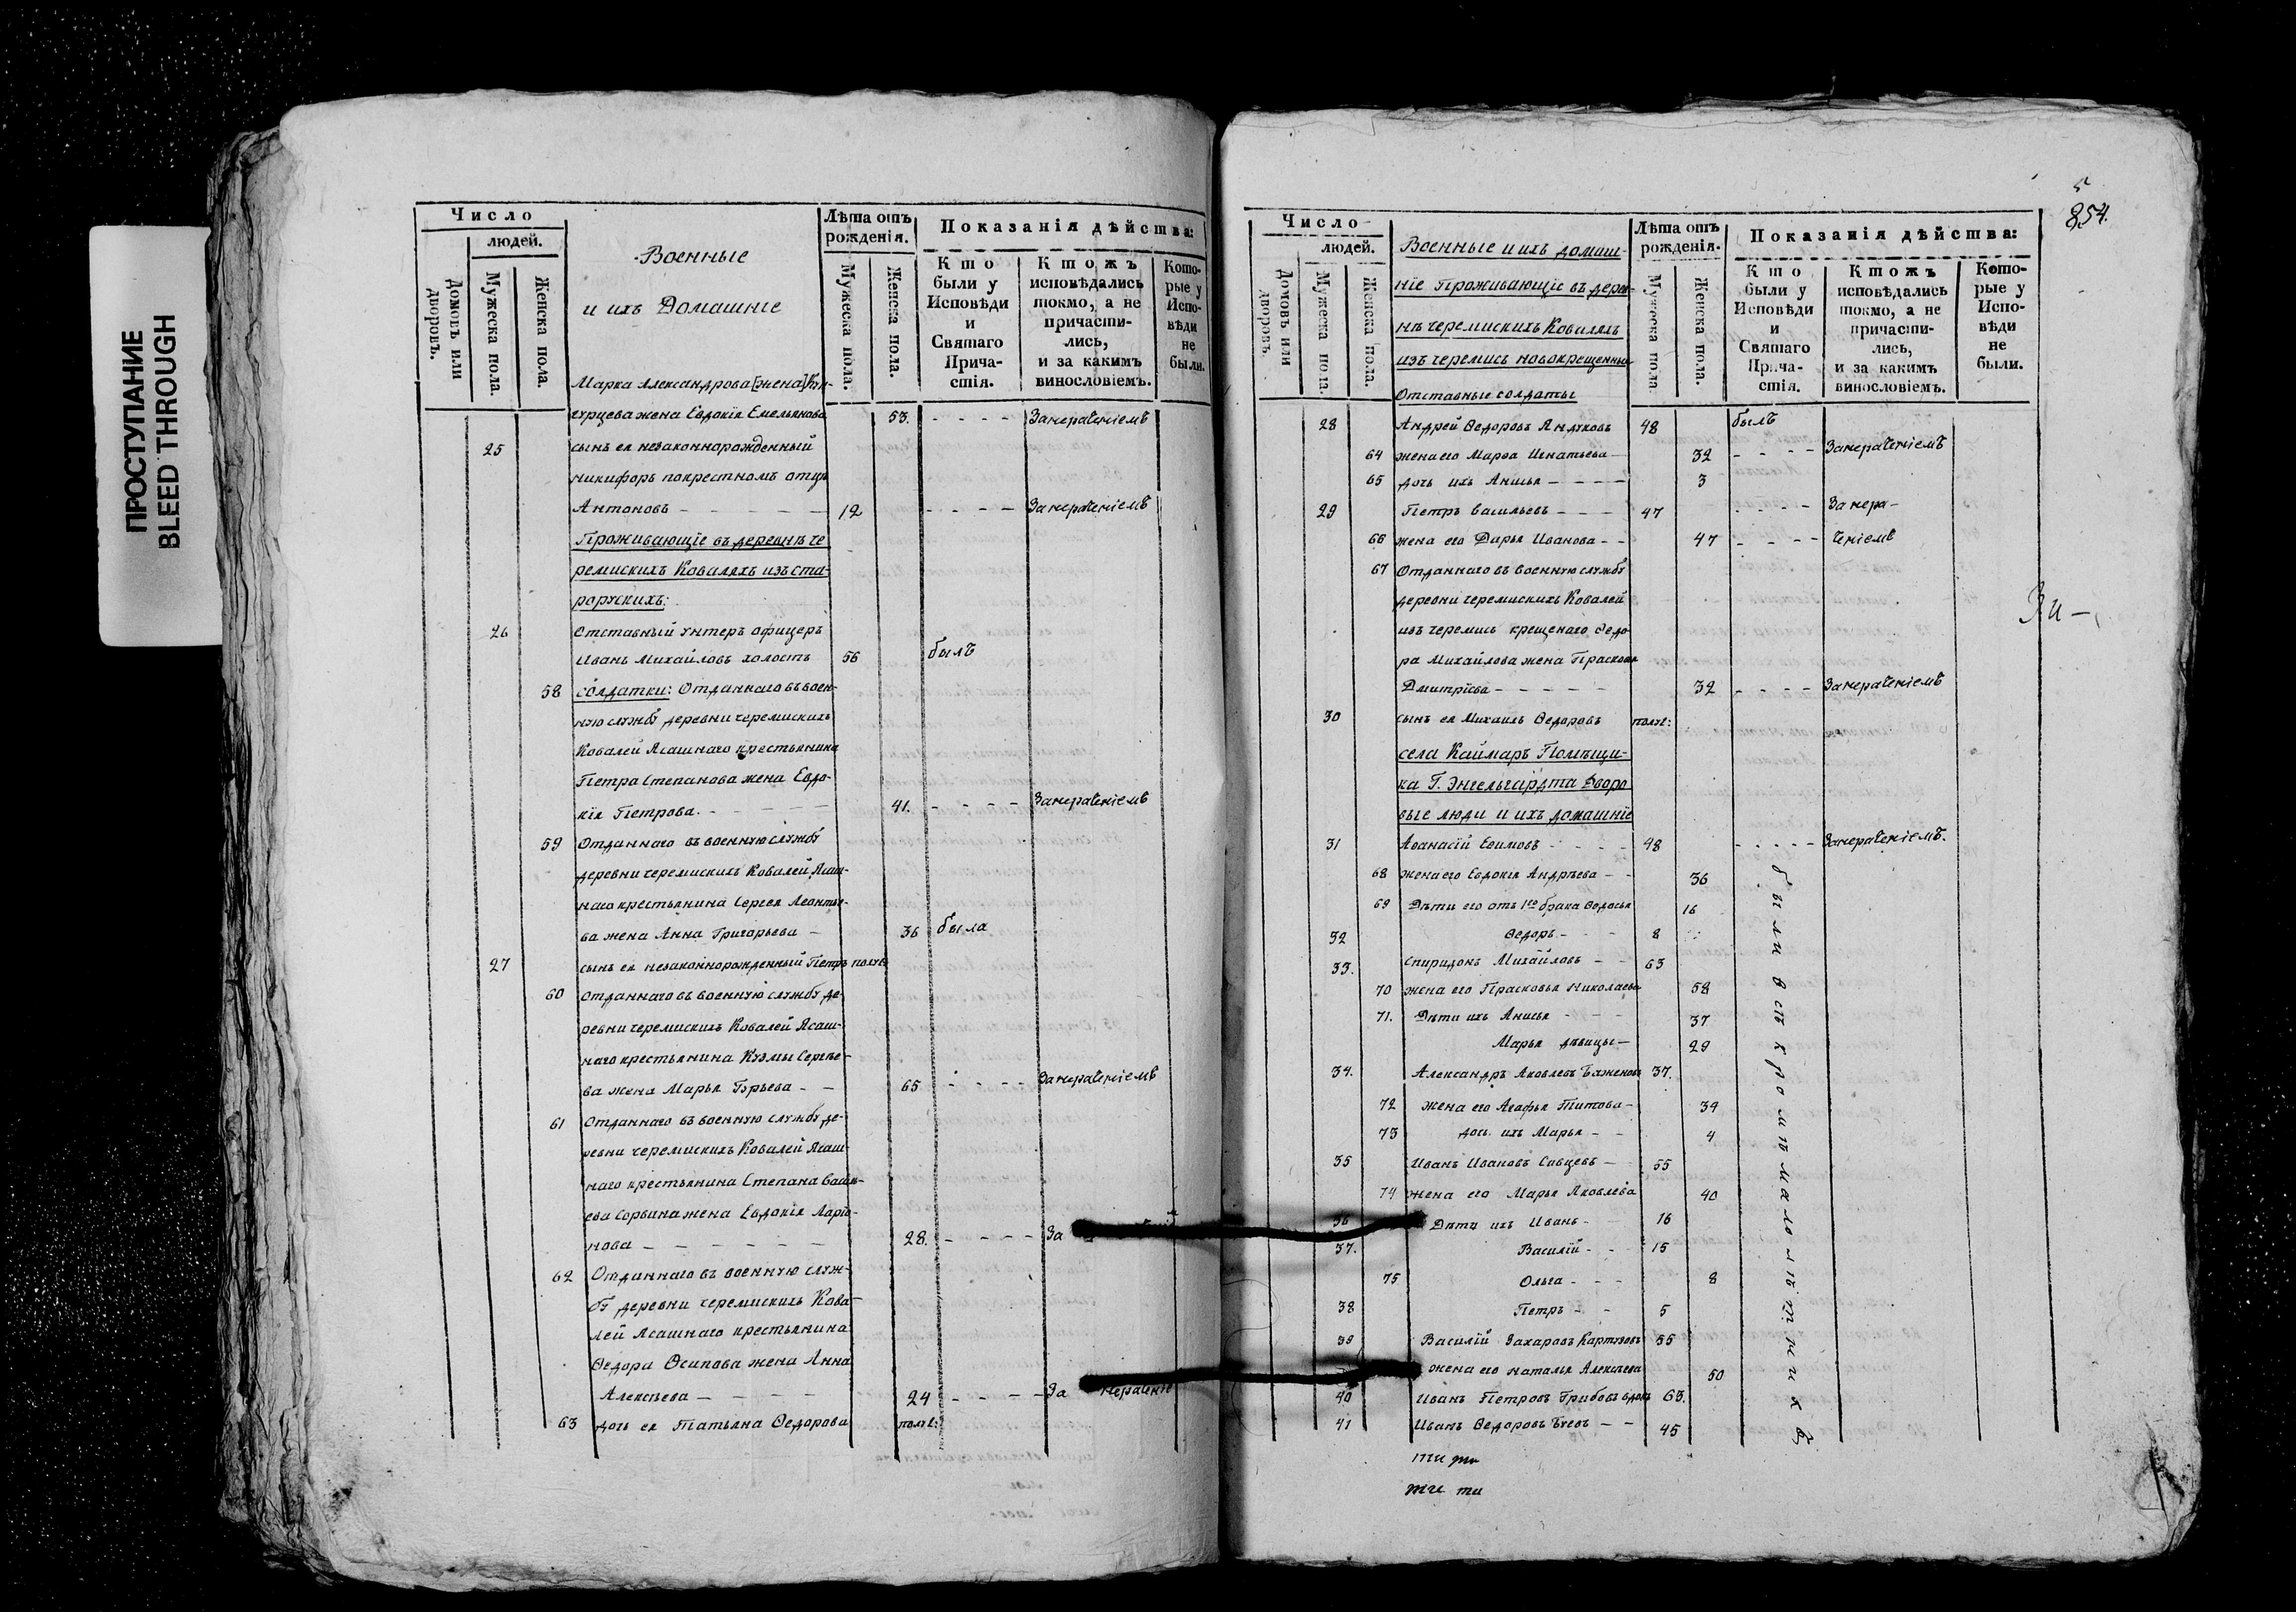 ПРОСТУПАНИЕ
BLEED THROUGH
Число
людей.
Домовъ или дворовъ.
Мужеска пола.
Женска пола.
Военные
и ихъ Домашніе
Лѣта отъ рожденія.
Мужеска пола.
Женска пола.
Показанія дѣйства:
Кто были у Исповѣди и Святаго Причастія.
Ктожъ исповѣдались токмо, а не причастились, и за какимъ винословіемъ.
Которые у Исповѣди не были.
Марка Александрова [жена]
жена Евдокія Емельянова 53. - - - - Занераченіемъ
25 сынъ ея незаконнорожденный
никифоръ покрестномъ отцѣ
Антоновъ - - - - - 12 - - - - Занераченіемъ
Проживающіе въ деревнѣ че
ремискихъ Коваляхъ изъ ста-
рорускихъ:
26 Отставный унтеръ офицеръ
Иванъ Михайловъ холостъ 56 былъ
58 солдатки: Отданнаго въ воен-
ную службу деревни черемискихъ
Ковалей Ясашнаго крестьянина
Петра Степанова жена Евдо-
кія Петрова. - - - - 41. - - - - Занераченіемъ
59 Отданнаго въ военную службу
деревни черемискихъ Ковалей Ясаш-
наго крестьянина Сергея Леонтье-
ва жена Анна Григорьева - 36 была
27 сынъ ея незаконнорожденный Петръ полуг:
60 Отданнаго въ военную службу де-
ревни черемискихъ Ковалей Ясаш-
наго крестьянина Кузмы Сергѣе-
ва жена Марья Гурьева - - 65 - - - - Занераченіемъ
61 Отданнаго въ военную службу де-
ревни черемискихъ Ковалей Ясаш-
наго крестьянина Степана Василь-
ева жена Евдокія Ларіо-
нова - - - - - - 28. - - - - За
62 Отданнаго въ военную служ-
бу деревни черемискихъ Кова-
лей Ясашнаго крестьянина
Ѳедора Осипова жена Анна
Алексѣева - - - - - 24 - - - - За нерачені
63 дочь ея Татьяна Ѳедорова полг:
854.
Число
людей.
Домовъ или дворовъ.
Мужеска пола.
Женска пола.
Военные и ихъ домаш-
ніе Проживающіе въ дерев-
нѣ черемискихъ Коваляхъ
изъ черемисъ новокрещенныхъ
Отставные солдаты
Лѣта отъ рожденія.
Мужеска пола
Женска пола.
Показанія дѣйства:
Кто были у Исповѣди и Святаго Причастія.
Ктожъ исповѣдались токмо, а не причастились, и за какимъ винословіемъ.
Которые у Исповѣди не были.
28 Андрей Ѳедоровъ Андуковъ 48 былъ
64 жена его Марѳа Игнатьева - 32 - - - - Занераченіемъ
65 дочь ихъ Анисья - - - - 3
29 Петръ Васильевъ - - - 47 - - - - Занера-
66 жена его Дарья Иванова - - 47 - - - - ченіемъ
67 Отданнаго въ военную службу
деревни черемискихъ Ковалей
изъ черемисъ крещенаго Ѳедо
ра Михайлова жена Прасковья
Дмитріева - - - - - 32 - - - - Занераченіемъ
30 сынъ ея Михаилъ Ѳедоровъ полуг:
Зи -
села Каймаръ Помѣщи-
ка Г. Энгельгардта Дворо
вые люди и ихъ домашніе
31 Аѳанасій Еѳимовъ - - - - 48 - - - - - Занераченіемъ.
68 жена его Евдокія Андрѣева - - 36
69 Дѣти его отъ 1го брака Ѳедосья 16
32 Ѳедоръ - - - 8
33. Спиридонъ Михайловъ - - 63
70 жена его Прасковья Николаева 58
71. Дѣти ихъ Анисья - - - 37
Марья дѣвицы - 29
34. Александръ Яковлевъ Баженовъ 37.
72 жена его Агафья Титова - 34
73 дочь ихъ Марья - - 4
35 Иванъ Ивановъ Савцевъ - 55
74 жена его Марья Яковлева 40
36 Дѣти ихъ Иванъ - - 16
37. Василій - - 15
75 Ольга - - - 8
38 Петръ - - 5
39 Василій Захаровъ Картузовъ 55
жена его Наталья Алексѣева 50
40 Иванъ Петровъ Грибовъ вдовъ 63.
41 Иванъ Ѳедоровъ - - 45
были всѣ кромѣ малолѣтнихъ